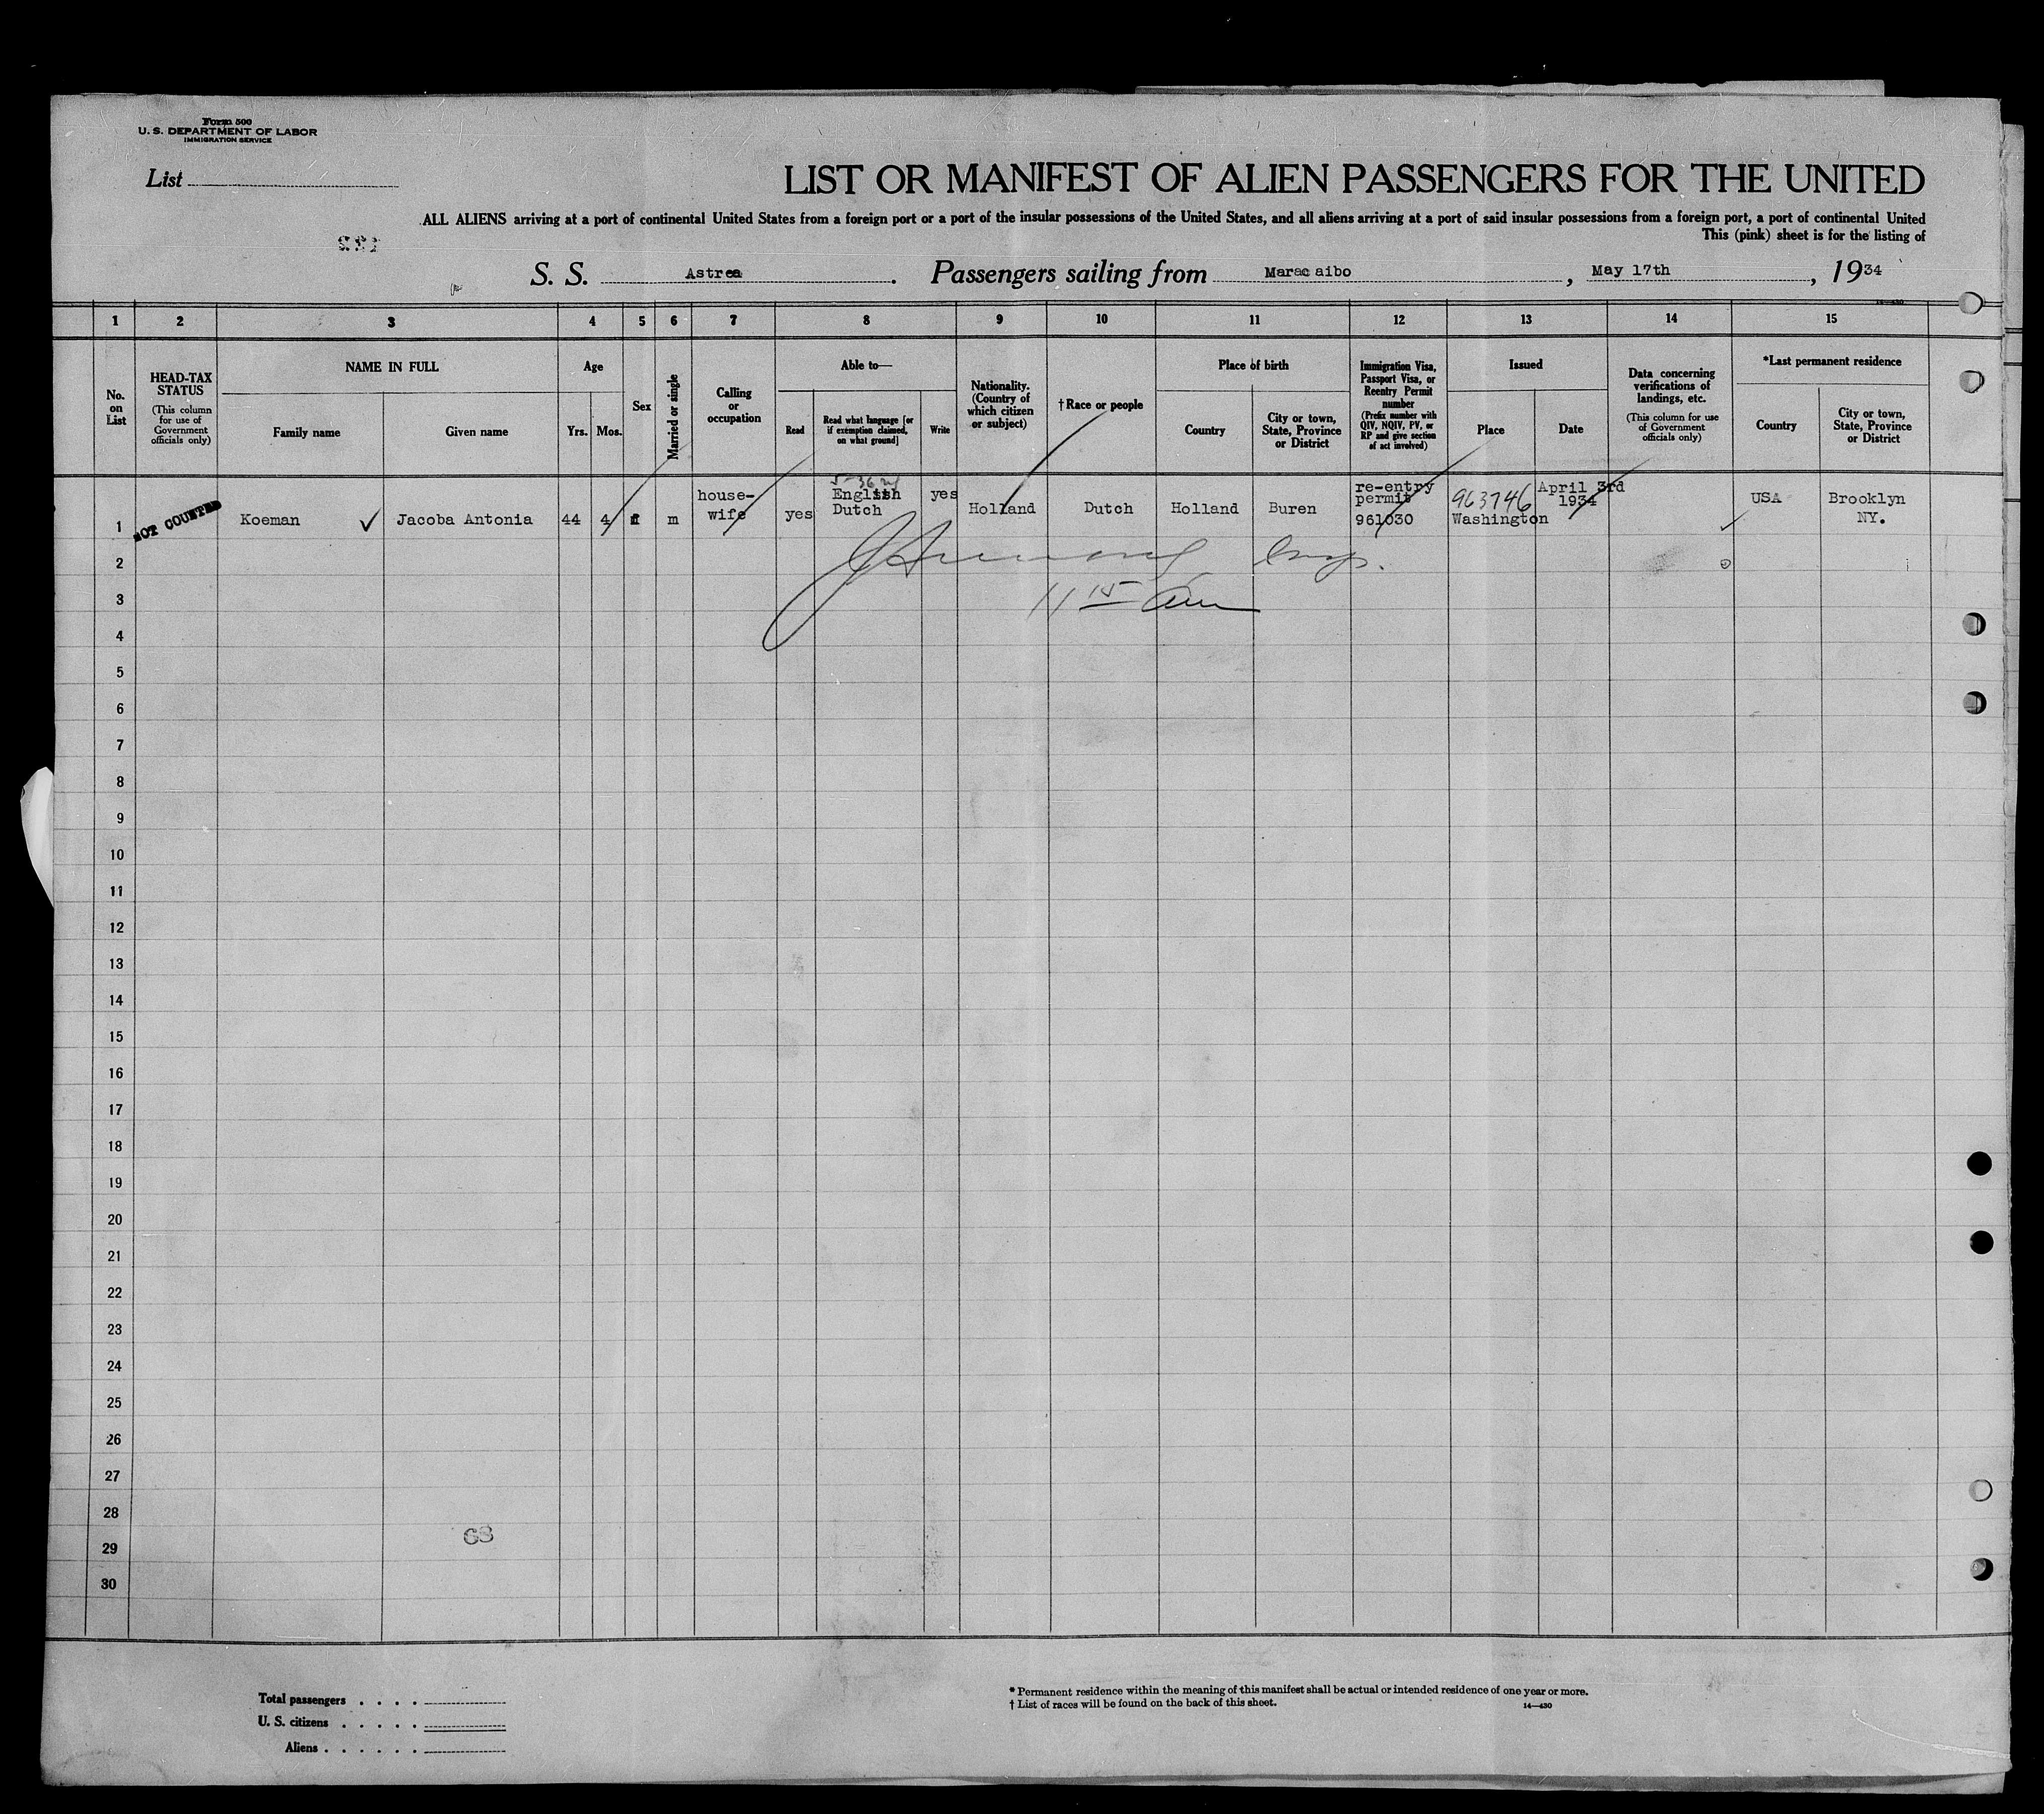 Form 500
U. S. DEPARTMENT OF LABOR
IMMIGRATION SERVICE
List
LIST OR MANIFEST OF ALIEN PASSENGERS FOR THE UNITED
ALL ALIENS arriving at a port of continental United States from a foreign port or a port of the insular possessions of the United States, and all aliens arriving at a port of said insular possessions from a foreign port, a port of continental United
This (pink) sheet is for the listing of
S. S. Astrea. Passengers sailing from Maracaibo, May 17th, 1934
14—430
1 2 3 4 5 6 7 8 9 10 11 12 13 14 15
No. on List
HEAD-TAX STATUS
(This column for use of Government officials only)
NAME IN FULL
Family name
Given name
Age
Yrs.
Mos.
Sex
Married or single
Calling or occupation
Able to—
Read
Read what language [or if exemption claimed, on what ground]
Write
Nationality. (Country of which citizen or subject)
† Race or people
Place of birth
Country
City or town, State, Province or District
Immigration Visa, Passport Visa, or Reentry Permit number
(Prefix number with QIV, NQIV, PV, or RP and give section of act involved)
Issued
Place
Date
Data concerning verifications of landings, etc.
(This column for use of Government officials only)
*Last permanent residence
Country
City or town, State, Province or District
1 NOT COUNTED Koeman Jacoba Antonia 44 4 f m house-wife yes English Dutch yes Holland Dutch Holland Buren re-entry permit 961030 963746 Washington April 3rd 1934 USA Brooklyn NY.
2
3 11 15 am
4
5
6
7
8
9
10
11
12
13
14
15
16
17
18
19
20
21
22
23
24
25
26
27
28
29
30
68
Total passengers . . . .
U. S. citizens . . . . .
Aliens . . . . . .
* Permanent residence within the meaning of this manifest shall be actual or intended residence of one year or more.
† List of races will be found on the back of this sheet.
14—430